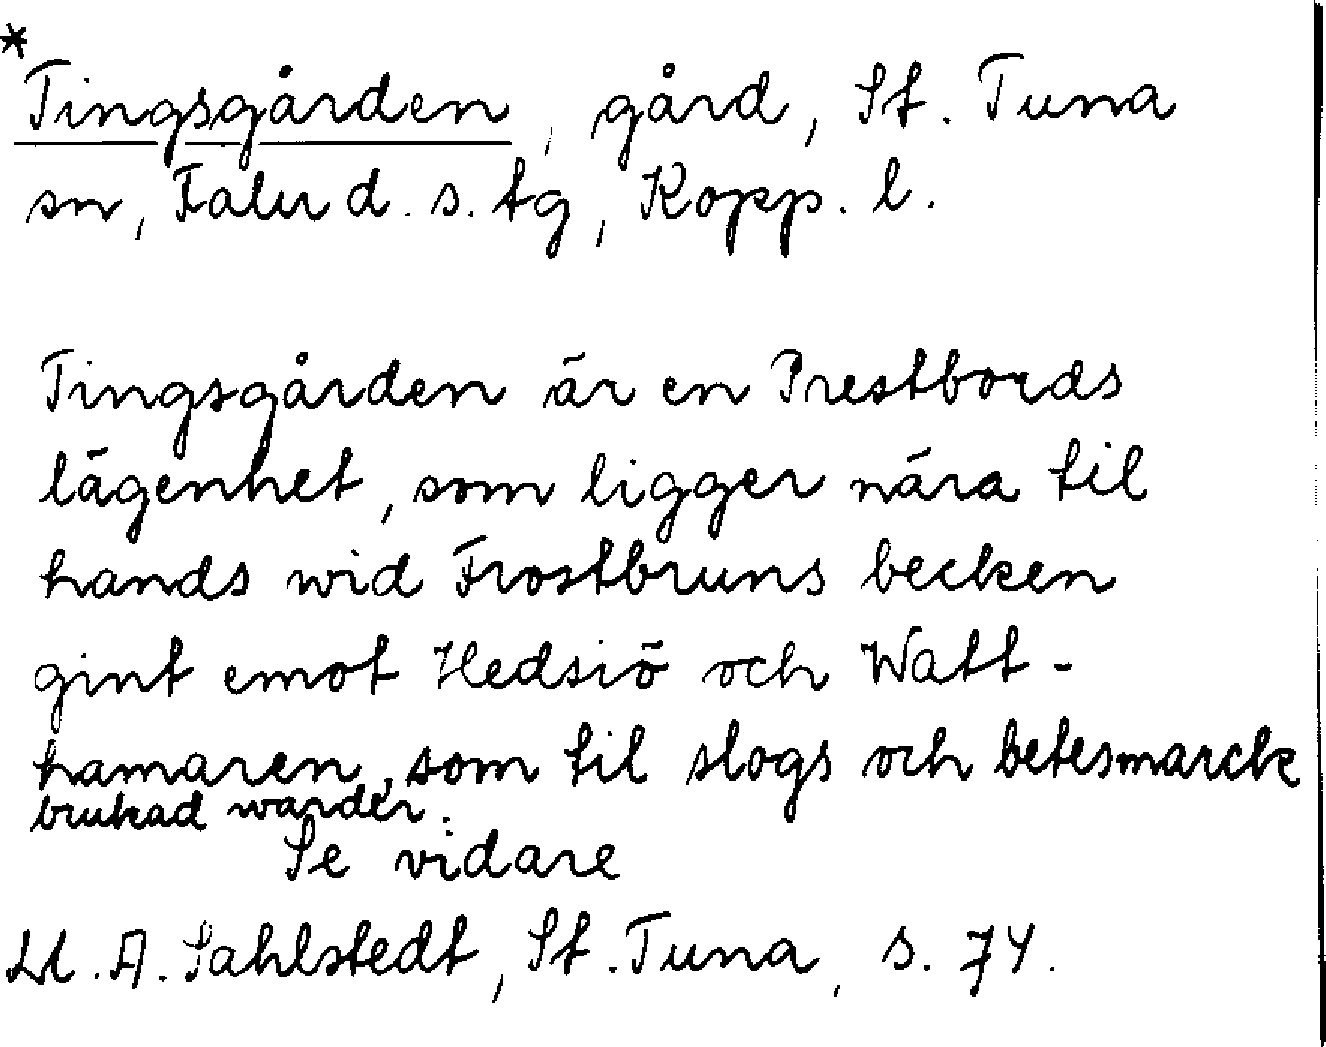 *
Tingsgården, gård, St. Tuna
sn, Falu d. s. tg, Kopp. l.
Tingsgården är en Prestbords
lägenhet, som ligger nära til
hands wid Frostbruns becken
gint emot Hedsiö och Watt-
hamaren, som til slogs och betesmarck
brukad warder.
Se vidare
A. Sahlstedt, St. Tuna, s. 74.